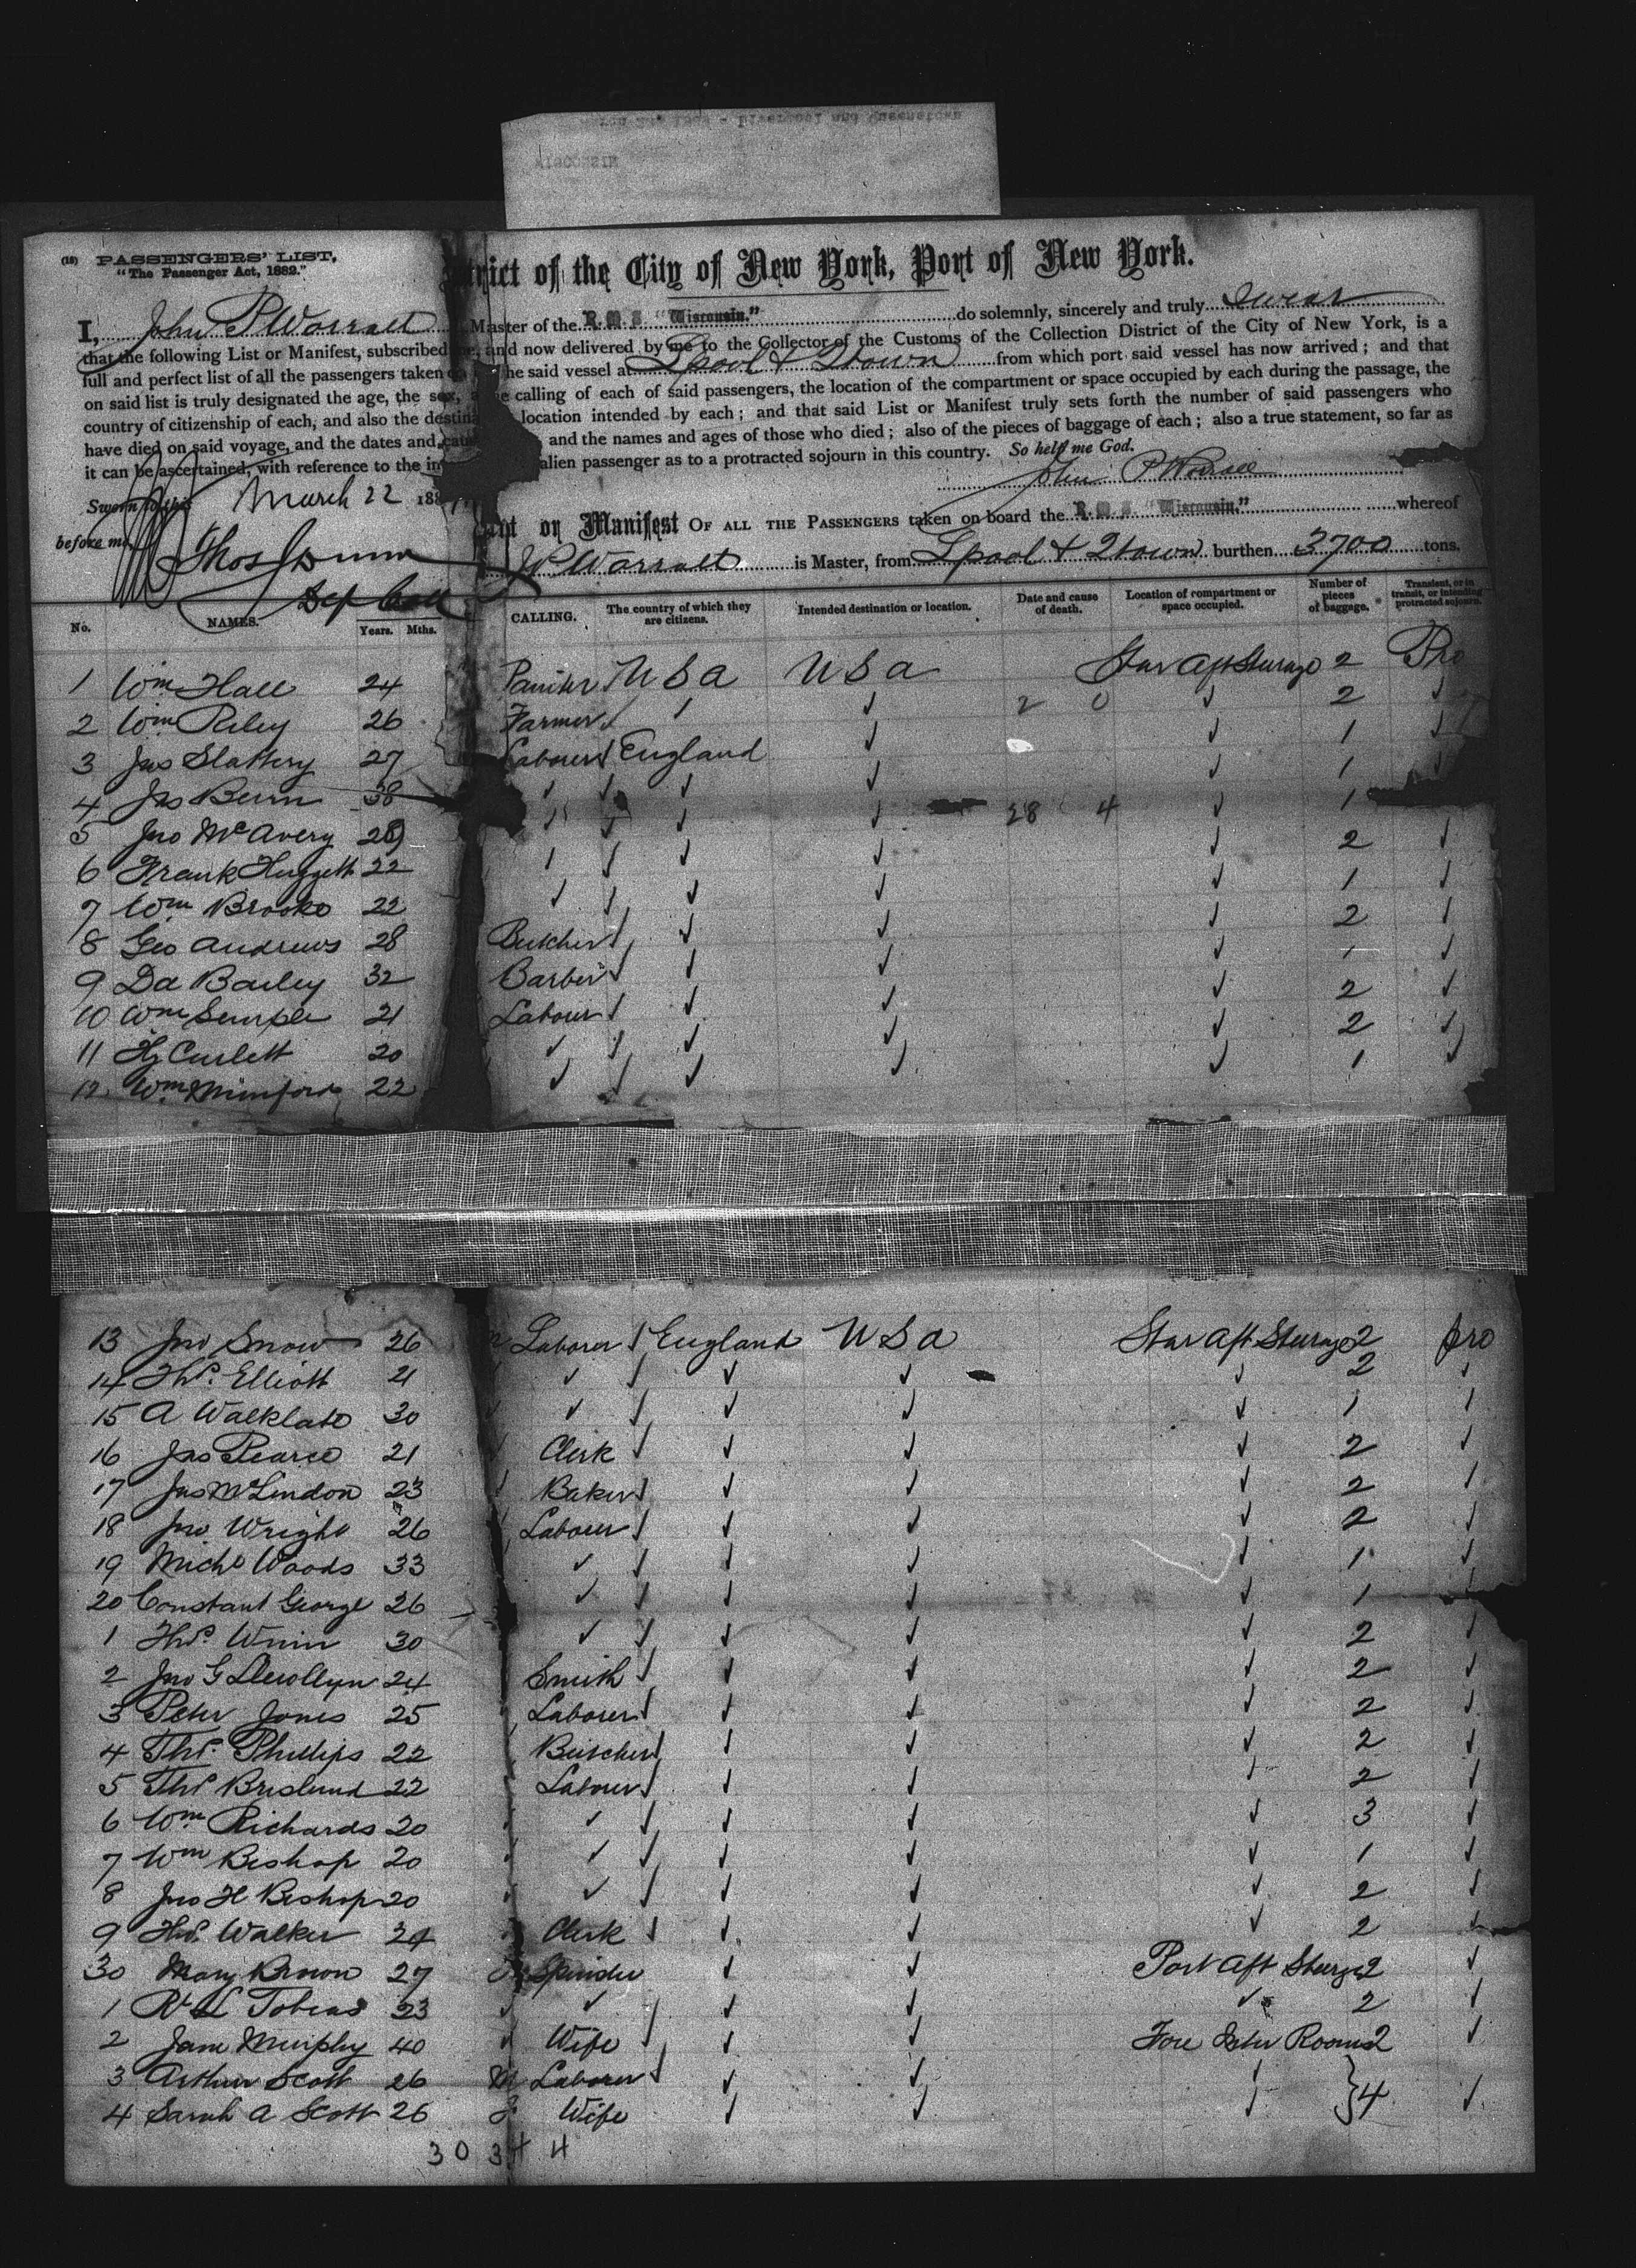 WISCONSIN
(18) PASSENGERS' LIST,
"The Passenger Act, 1882."
trict of the City of New York, Port of New York.
I, John P Worrall Master of the R.M.S. "Wisconsin." do solemnly, sincerely and truly swear
that the following List or Manifest, subscribed and now delivered by me to the Collector of the Customs of the Collection District of the City of New York, is a
full and perfect list of all the passengers taken the said vessel at Lpool & Qtown from which port said vessel has now arrived; and that
on said list is truly designated the age, the sex, calling of each of said passengers, the location of the compartment or space occupied by each during the passage, the
country of citizenship of each, and also the destina location intended by each; and that said List or Manifest truly sets forth the number of said passengers who
have died on said voyage, and the dates and cau and the names and ages of those who died; also of the pieces of baggage of each; also a true statement, so far as
it can be ascertained, with reference to the in alien passenger as to a protracted sojourn in this country. So help me God.
John P Worrall
Sworn to this March 22 188
before me
or Manifest OF ALL THE PASSENGERS taken on board the R.M.S. "Wisconsin," whereof
Worrall is Master, from Lpool & Qtown burthen 3700 tons.
No. NAMES. Years. Mths. CALLING. The country of which they are citizens. Intended destination or location. Date and cause of death. Location of compartment or space occupied. Number of pieces of baggage. Transient, or in transit, or intending protracted sojourn.
1 Wm Hall 24 Painter U S A U S A Star Aft Sterage 2 Pro
2 Wm Riley 26 Farmer ✓ ✓ 2 0 ✓ 2 ✓
3 Jas Slattery 27 Labourer England ✓ ✓ 1 ✓
4 Jas Burn 38 ✓ ✓ ✓ ✓ 1 ✓
5 Jno McAvery 28 ✓ ✓ ✓ 28 4 ✓ 1
6 Frank Huggett 22 ✓ ✓ ✓ ✓ 2 ✓
7 Wm Brooks 22 ✓ ✓ ✓ ✓ 1 ✓
8 Geo Andrews 28 Butcher ✓ ✓ ✓ 2 ✓
9 Da Bailey 32 Barber ✓ ✓ ✓ 1 ✓
10 Wm Semple 21 Labourer ✓ ✓ ✓ 2 ✓
11 Hy Curlett 20 ✓ ✓ ✓ ✓ 2 ✓
12 Wm Minford 22 ✓ ✓ ✓ ✓ 1 ✓
13 Jno Snow 26 Laborer England U S A Star Aft Sterage 2 pro
14 Thos Elliott 21 ✓ ✓ ✓ ✓ 2 ✓
15 A Walklate 30 ✓ ✓ ✓ ✓ 1 ✓
16 Jas Pearce 21 Clerk ✓ ✓ ✓ 2 ✓
17 Jas McLindon 23 Baker ✓ ✓ ✓ 2 ✓
18 Jno Wright 26 Labourer ✓ ✓ ✓ 2 ✓
19 Michl Woods 33 ✓ ✓ ✓ ✓ 1 ✓
20 Constant George 26 ✓ ✓ ✓ ✓ 1
1 Thos Winn 30 ✓ ✓ ✓ ✓ 2 ✓
2 Jno G Llewollyn 24 Smith ✓ ✓ ✓ 2 ✓
3 Peter Jones 25 Laborer ✓ ✓ ✓ 2 ✓
4 Thos Phillips 22 Butcher ✓ ✓ ✓ 2 ✓
5 Thos 22 Labourer ✓ ✓ ✓ 2 ✓
6 Wm Richards 20 ✓ ✓ ✓ ✓ 3 ✓
7 Wm Bishop 20 ✓ ✓ ✓ ✓ 1 ✓
8 Jno H Bishop 20 ✓ ✓ ✓ ✓ 2 ✓
9 Thos Walker 24 Clerk ✓ ✓ ✓ 2 ✓
30 Mary Brown 27 Spinster ✓ ✓ Port Aft Sterge 2 ✓
1 Tobias 23 ✓ ✓ ✓ ✓ ✓ 2 ✓
2 Jane Murphy 40 ✓ Wife ✓ ✓ Fore Inter Rooms 2 ✓
3 Arthur Scott 26 M Laborer ✓ ✓ ✓
4 Sarah A Scott 26 F Wife ✓ ✓ ✓ } 4 ✓
30 34 4